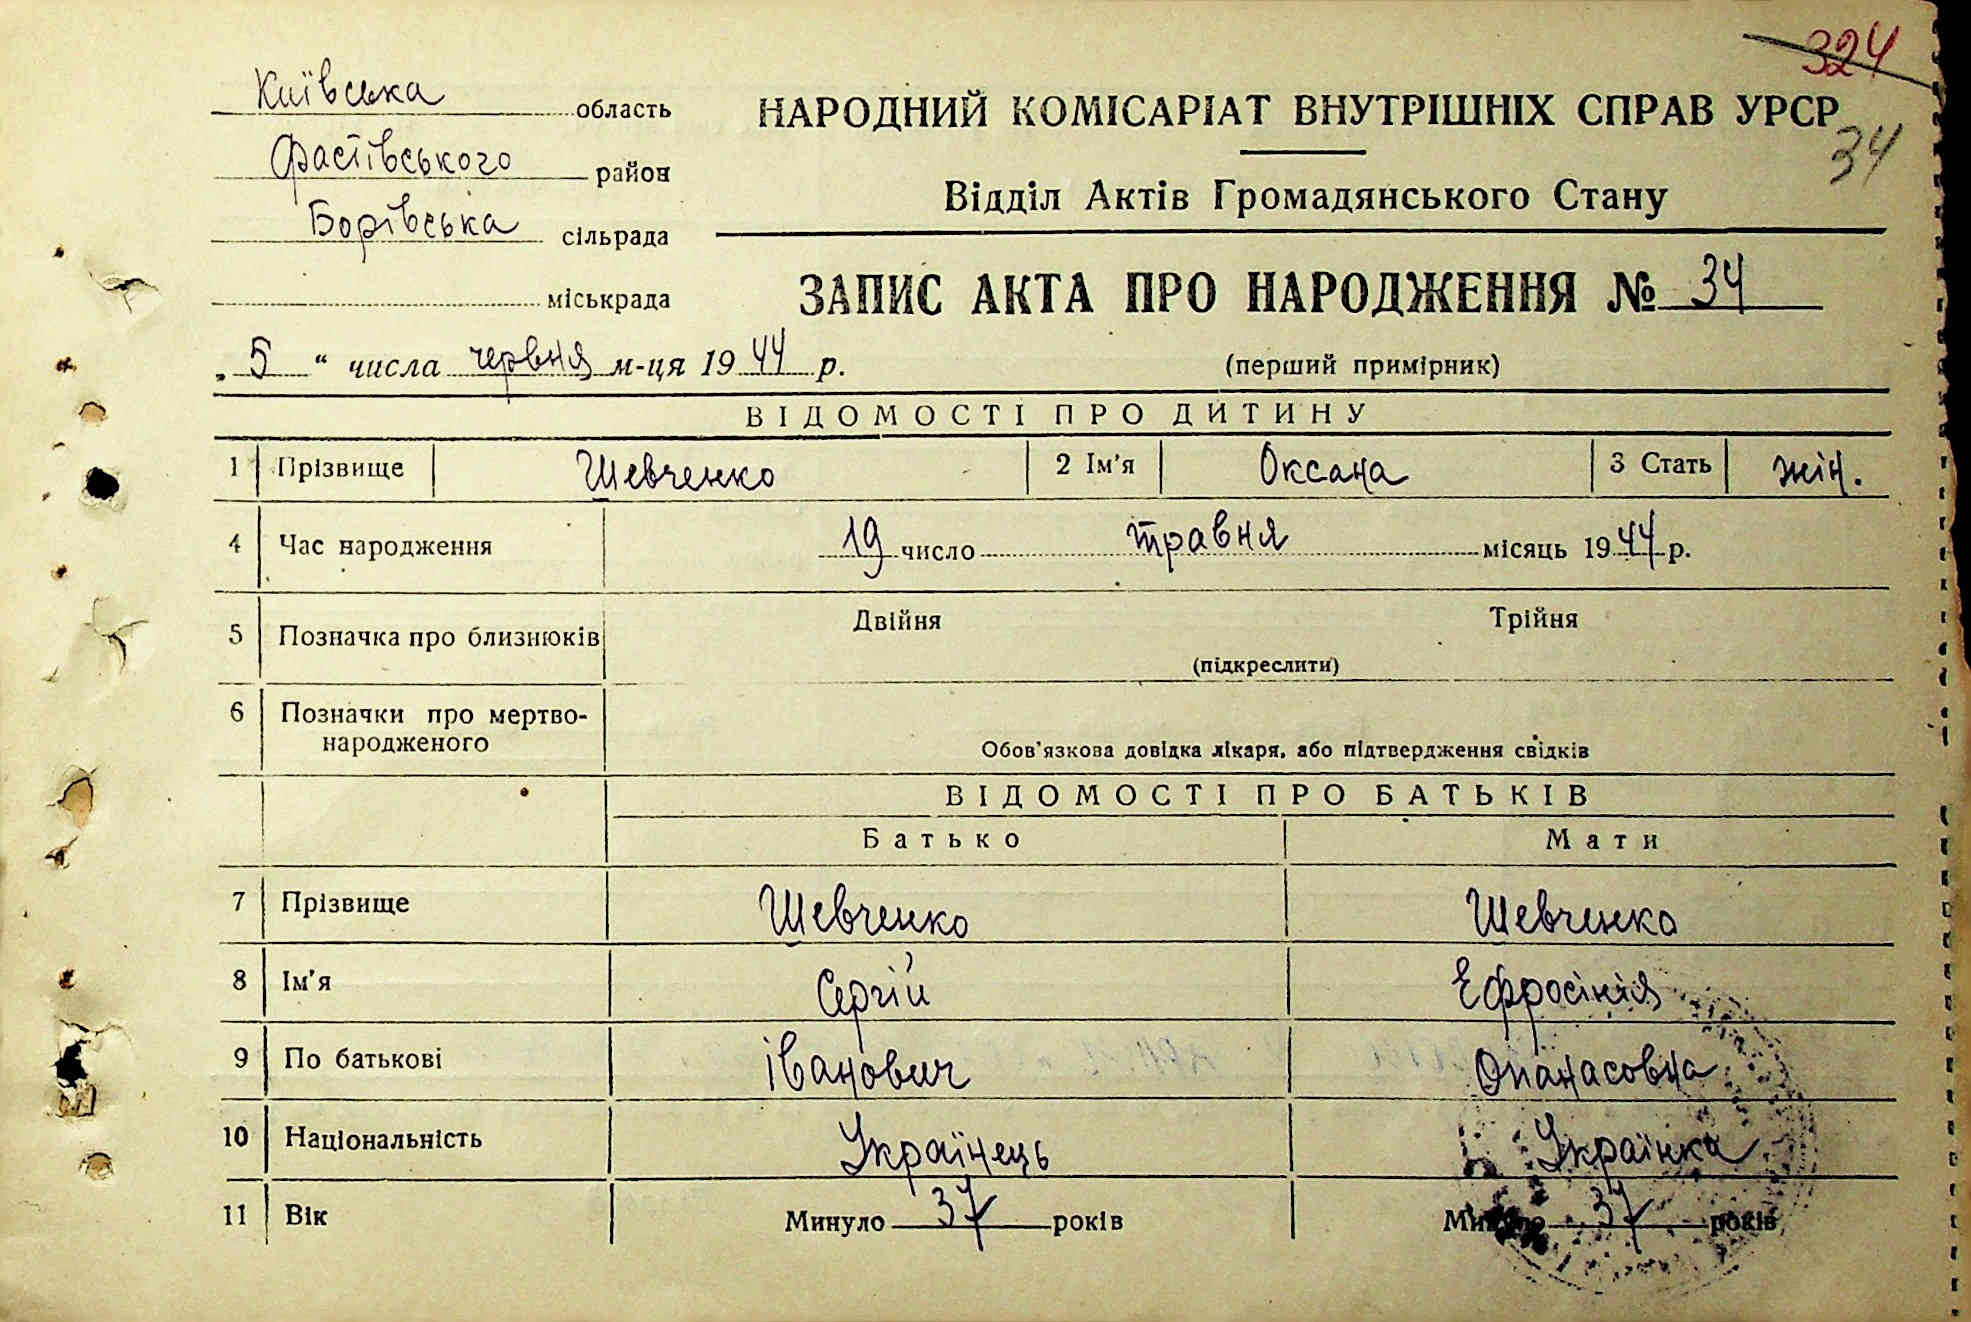 324
Київська область
Фастівського район
Борівська сільрада
міськрада
НАРОДНИЙ КОМІСАРІАТ ВНУТРІШНІХ СПРАВ УРСР
34
Відділ Актів Громадянського Стану
ЗАПИС АКТА ПРО НАРОДЖЕННЯ № 34
„ 5 “ числа червня м-ця 1944 р.
(перший примірник)
ВІДОМОСТІ ПРО ДИТИНУ
1 Прізвище Шевченко 2 Ім'я Оксана 3 Стать жін.
4 Час народження 19 число травня місяць 1944 р.
5 Позначка про близнюків Двійня Трійня
(підкреслити)
6 Позначки про мертво-
народженого
Обов'язкова довідка лікаря, або підтвердження свідків
ВІДОМОСТІ ПРО БАТЬКІВ
Батько Мати
7 Прізвище Шевченко Шевченко
8 Ім'я Сергій Ефросінія
9 По батькові Іванович Опанасовна
10 Національність Українець Українка
11 Вік Минуло 37 років Минуло 37 років